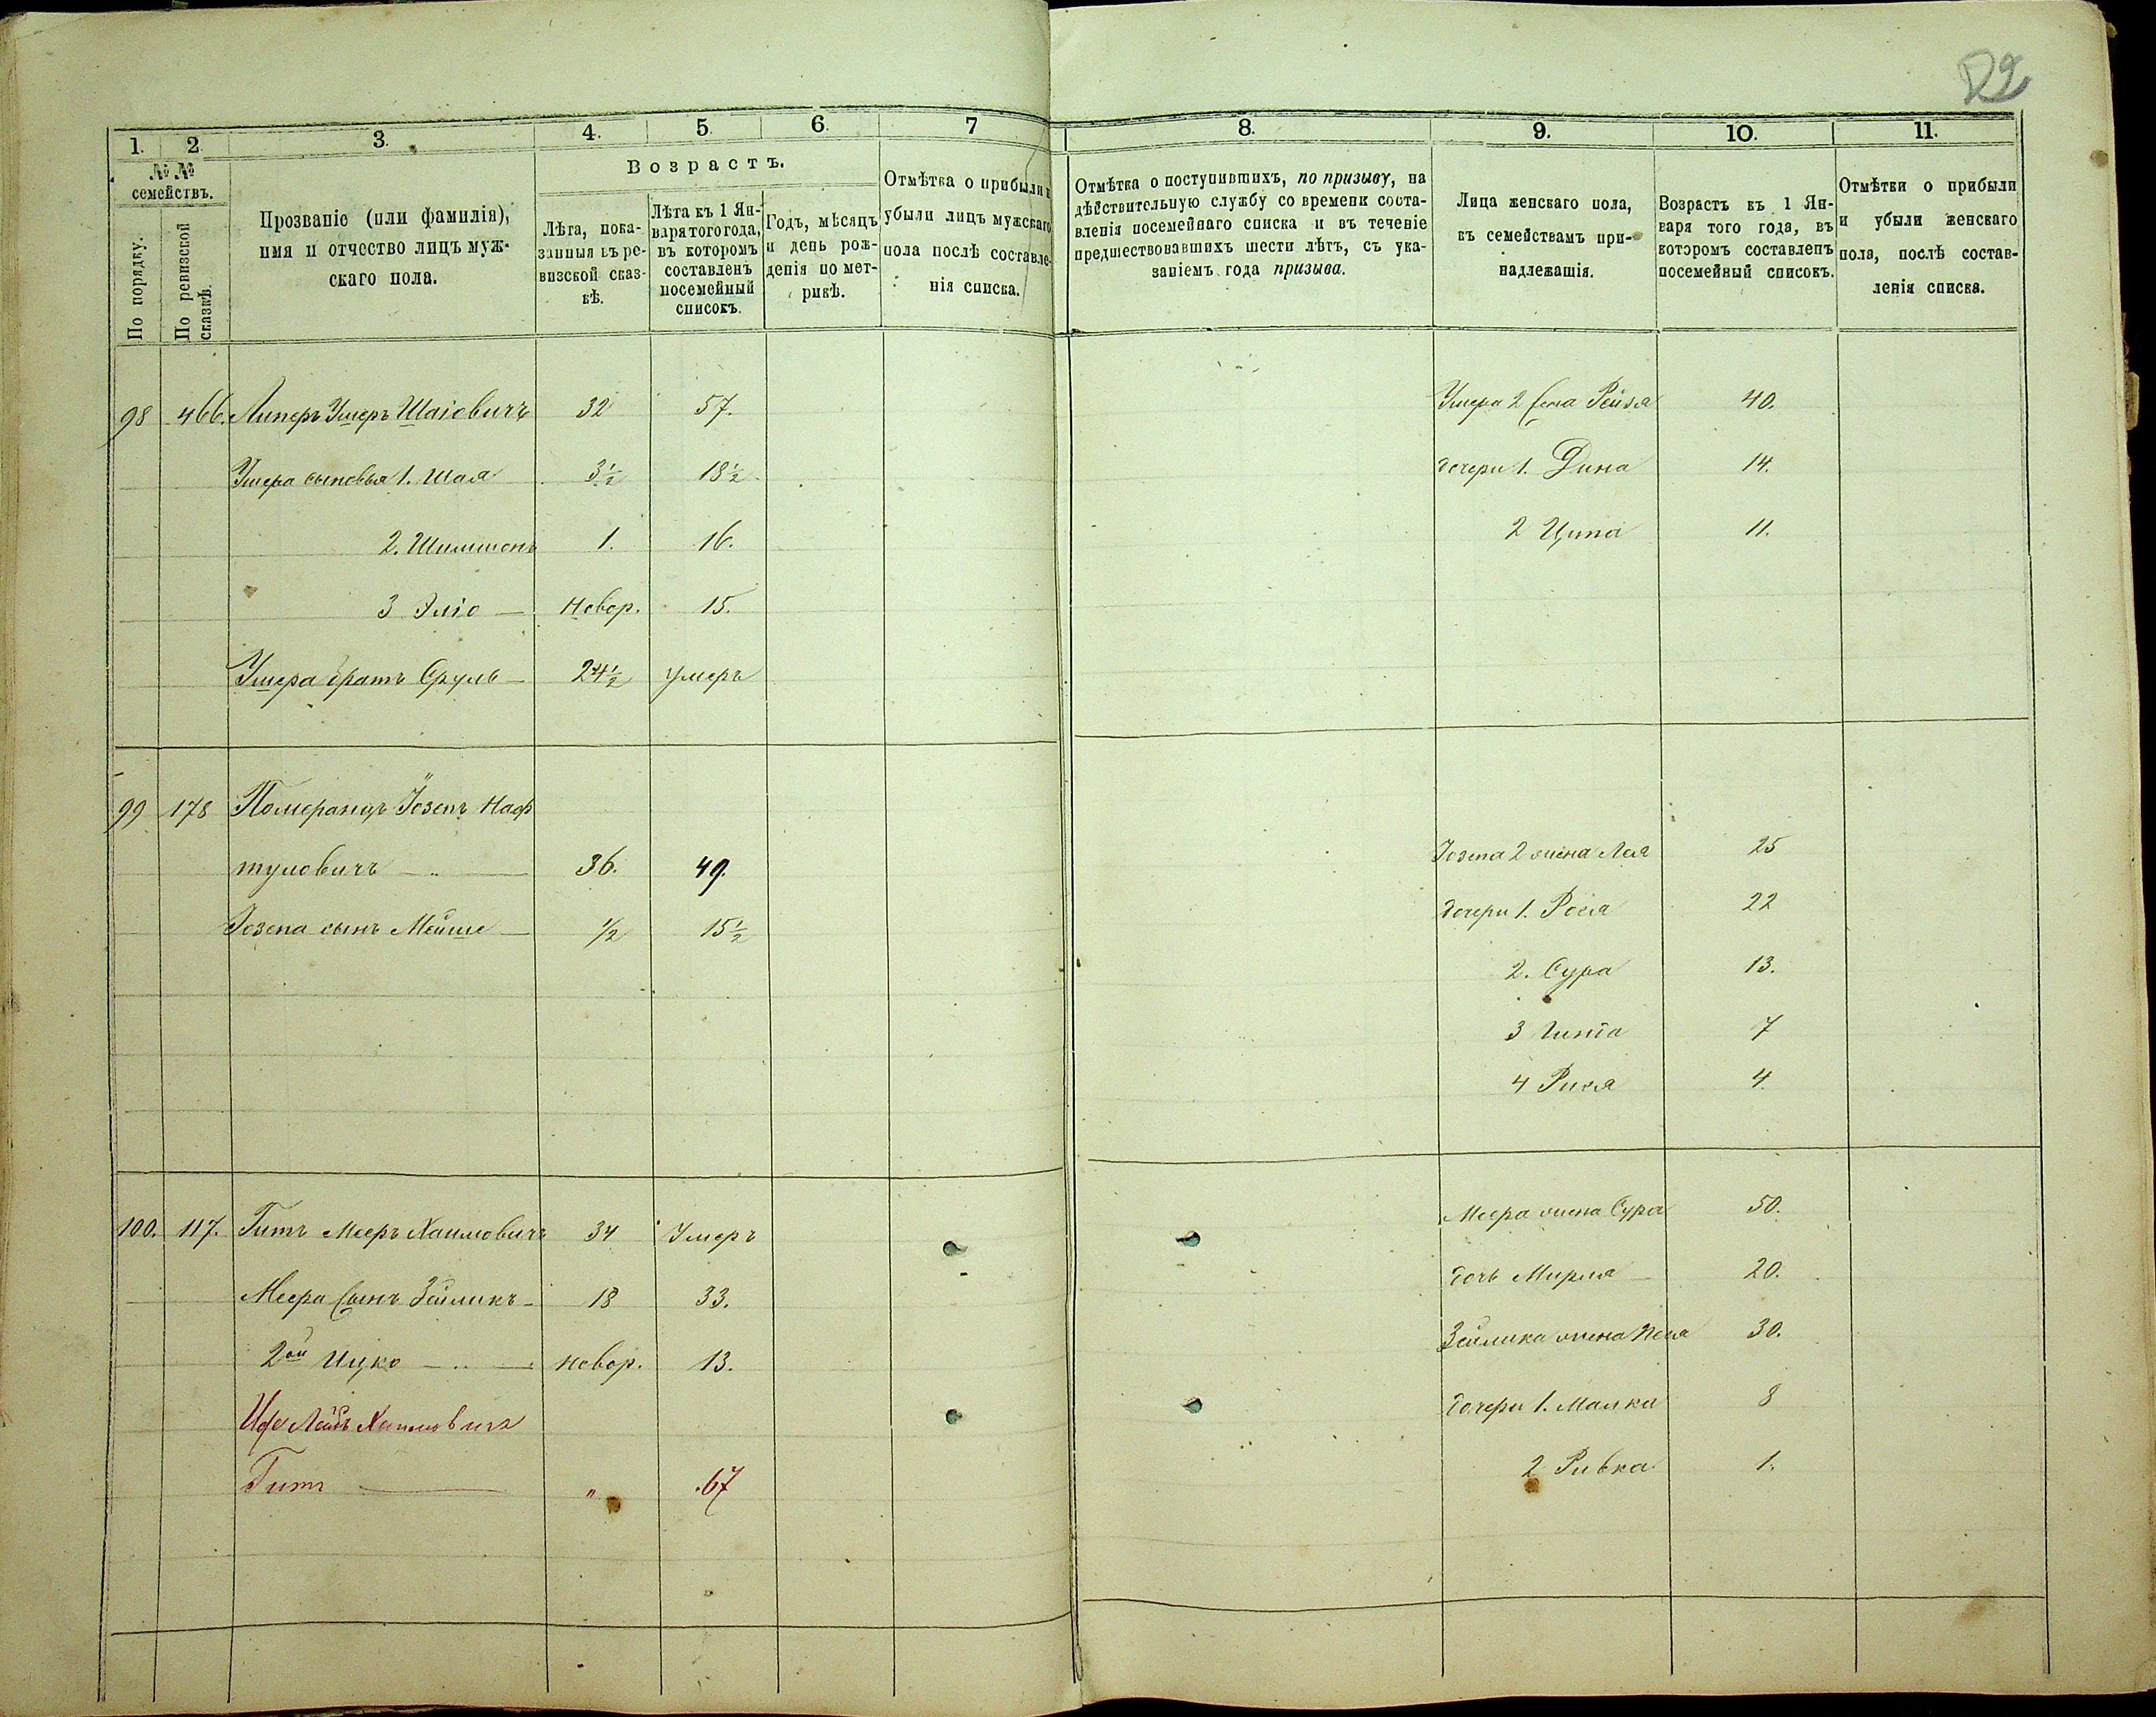 22
1. 2. 3. 4. 5. 6. 7 8. 9. 10. 11.
№ № семействъ.
По порядку.
По ревизской сказкѣ.
Прозваніе (или фамилія),
имя и отчество лицъ муж-
скаго пола.
Возрастъ.
Лѣта, пока-
занныя въ ре-
визской сказ-
кѣ.
Лѣта къ 1 Ян-
варя того года,
въ которомъ
составленъ
посемейный
списокъ.
Годъ, мѣсяцъ
и день рож-
денія по мет-
рикѣ.
Отмѣтка о прибыли и
убыли лицъ мужскаго
пола послѣ составле-
нія списка.
Отмѣтка о поступившихъ, по призыву, на
дѣйствительную службу со времени соста-
вленія посемейнаго списка и въ теченіе
предшествовавшихъ шести лѣтъ, съ ука-
заніемъ года призыва.
Лица женскаго пола,
къ семействамъ при-
надлежащія.
Возрастъ къ 1 Ян-
варя того года, въ
которомъ составленъ
посемейный списокъ.
Отмѣтки о прибыли
и убыли женскаго
пола, послѣ состав-
ленія списка.
98 466. Липеръ Ушеръ Шаіовичъ 32 57. Ушера 2 жена Рейзя 40.
Ушера сыновья 1. Шая 3½ 18½ дочери 1. Дина 14.
2. Шимшонъ 1. 16. 2 Ципа 11.
3 Эліо новор. 15.
Ушера братъ Сруль 24½ умеръ
99 178 Померанцъ Іозепъ Наф
туловичъ 36. 49. Іозепа 2 жена Лея 25
Іозепа сынъ Мейше ½ 15½ дочери 1. Рося 22
2. Сура 13.
3 7
4 4.
100. 117. Гитъ Мееръ Хаимовичъ 34 Умеръ Меера жена Сура 50.
Меера сынъ Зейликъ 18 33. дочь Мирля 20.
2ой Ицко новор. 13. Зейлика жена Песя 30.
Хаимовичъ дочери 1. Малка 8
Гитъ " 67 2 Ривка 1.